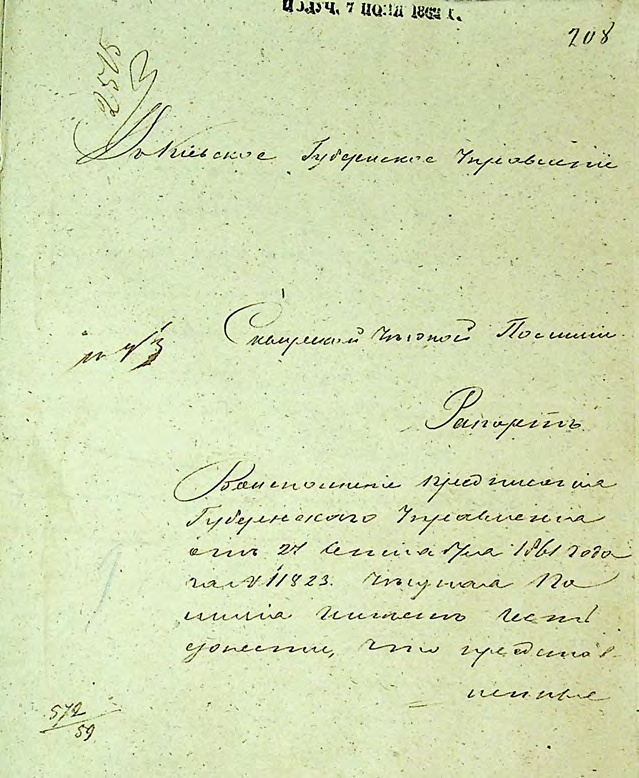 ПОЛУЧ. 7 ІЮЛЯ 1862 г.
208
2515
Въ Кіевское Губернское Управленіе
Сквирской Уѣздной Полиціи
Рапортъ.
Во исполненіе предписанія
Губернскаго Управленія
отъ 27 Сентября 1861 года
за № 11823. Уѣздная По
лиція имѣетъ честь
донести, что представ-
ленные
572
59